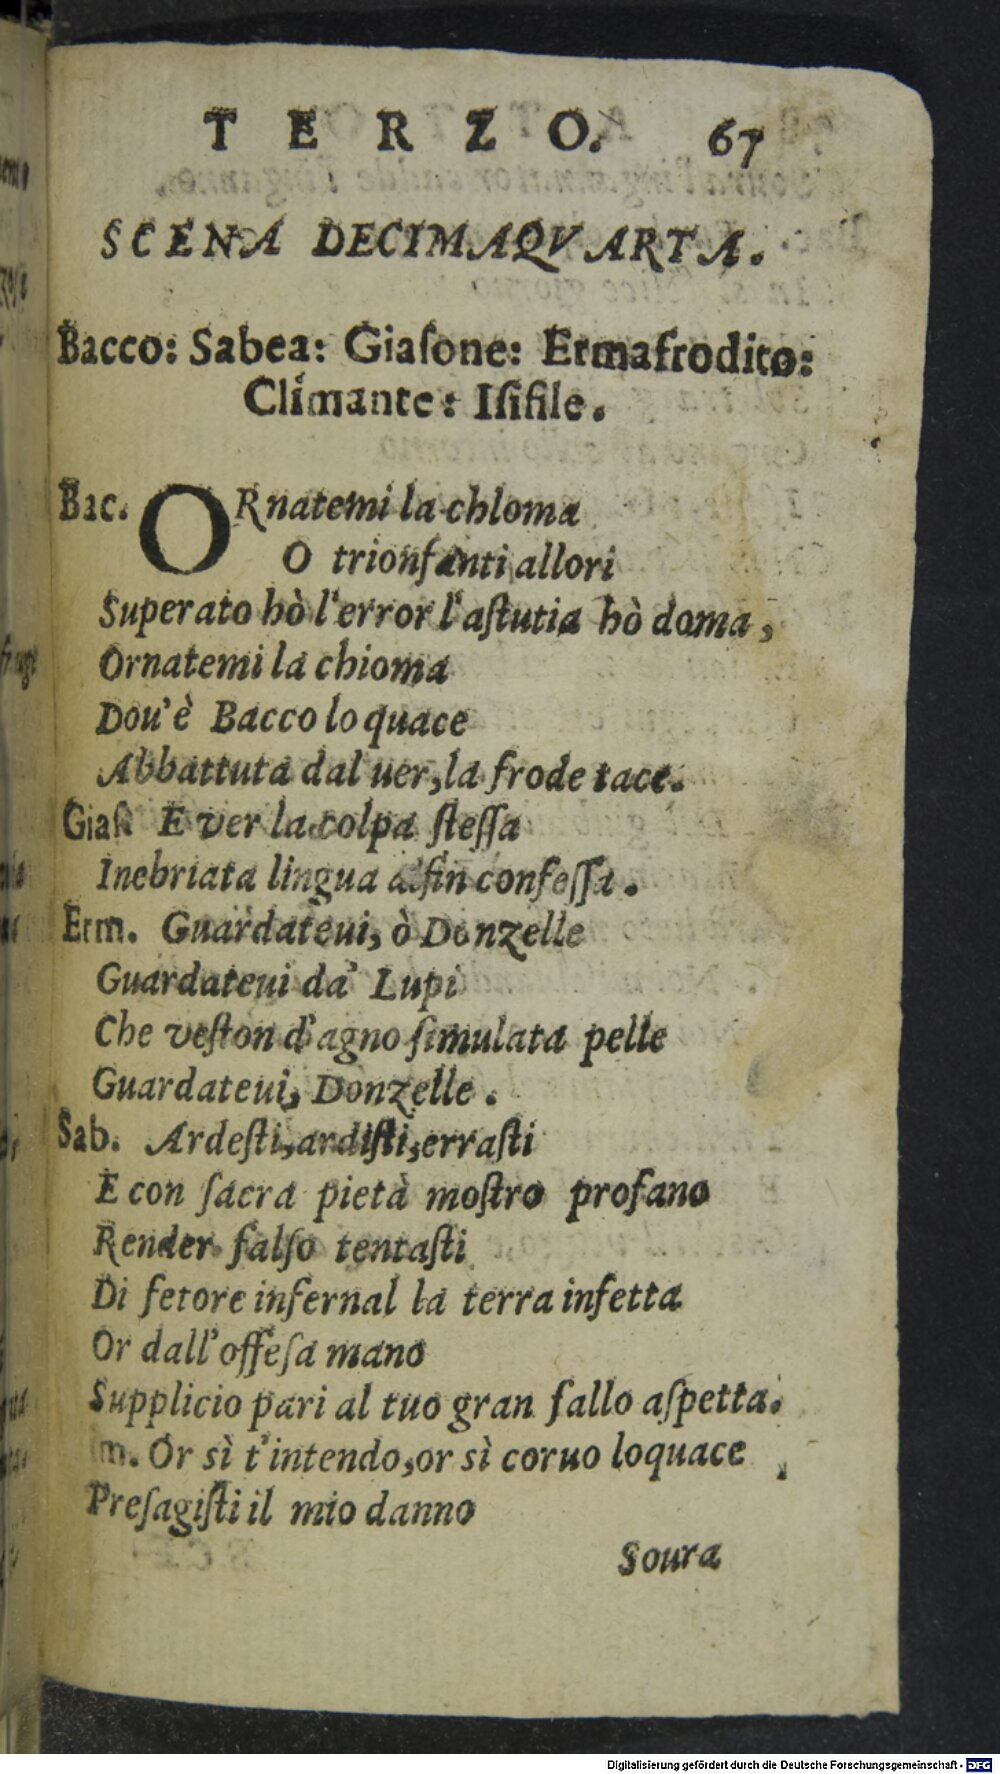 TERZO. 67
SCENA DECIMAQVARTA.
Bacco: Sabea: Giaſone: Ermafrodito:
Climante: Iſifile.
Bac. ORnatemi la chloma
O trionfanti allori
Superato hò l'error l'aſtutia hò doma,
Ornatemi la chioma
Dou'è Bacco loquace
Abbattuta dal uer, la frode tace.
Giaſ. E ver la colpa ſteſſa
Inebriata lingua alfin confeſſa.
Erm. Guardateui, ò Donzelle
Guardateui da' Lupi
Che veſton d'agno ſimulata pelle
Guardateui, Donzelle.
Sab. Ardeſti, ardiſti, erraſti
E con ſacra pietà moſtro profano
Render falſo tentaſti
Di fetore infernal la terra infetta
Or dall'offeſa mano
Supplicio pari al tuo gran fallo aſpetta.
Or sì t'intendo, or sì coruo loquace
Preſagiſti il mio danno
Soura
Digitalisierung gefördert durch die Deutsche Forschungsgemeinschaft - DFG